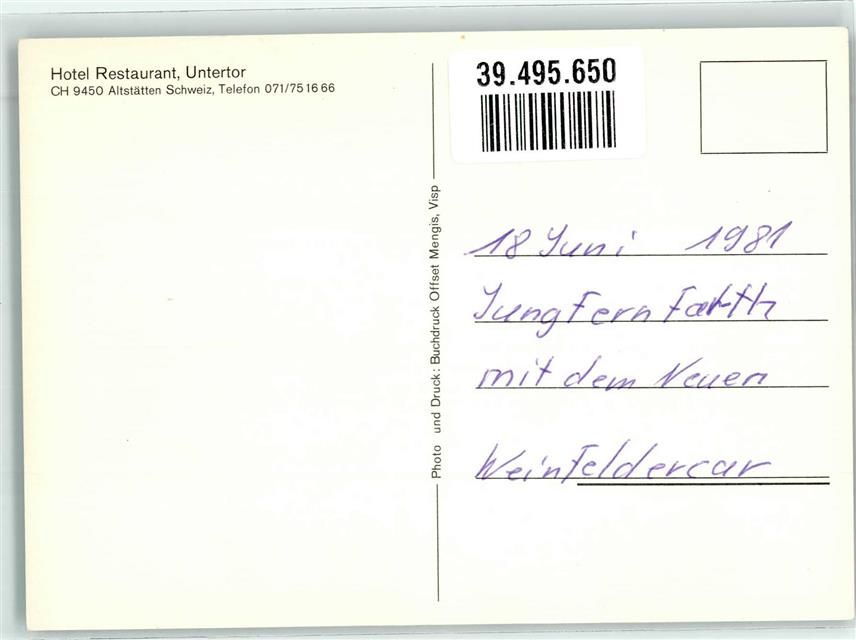 Hotel Restaurant, Untertor
CH 9450 Altstätten Schweiz, Telefon 071/75 16 66
39.495.650
Photo und Druck: Buchdruck Offset Mengis, Visp
18 Juni 1981
Jungfern Fartth
mit dem Neuen
Weinfeldercar